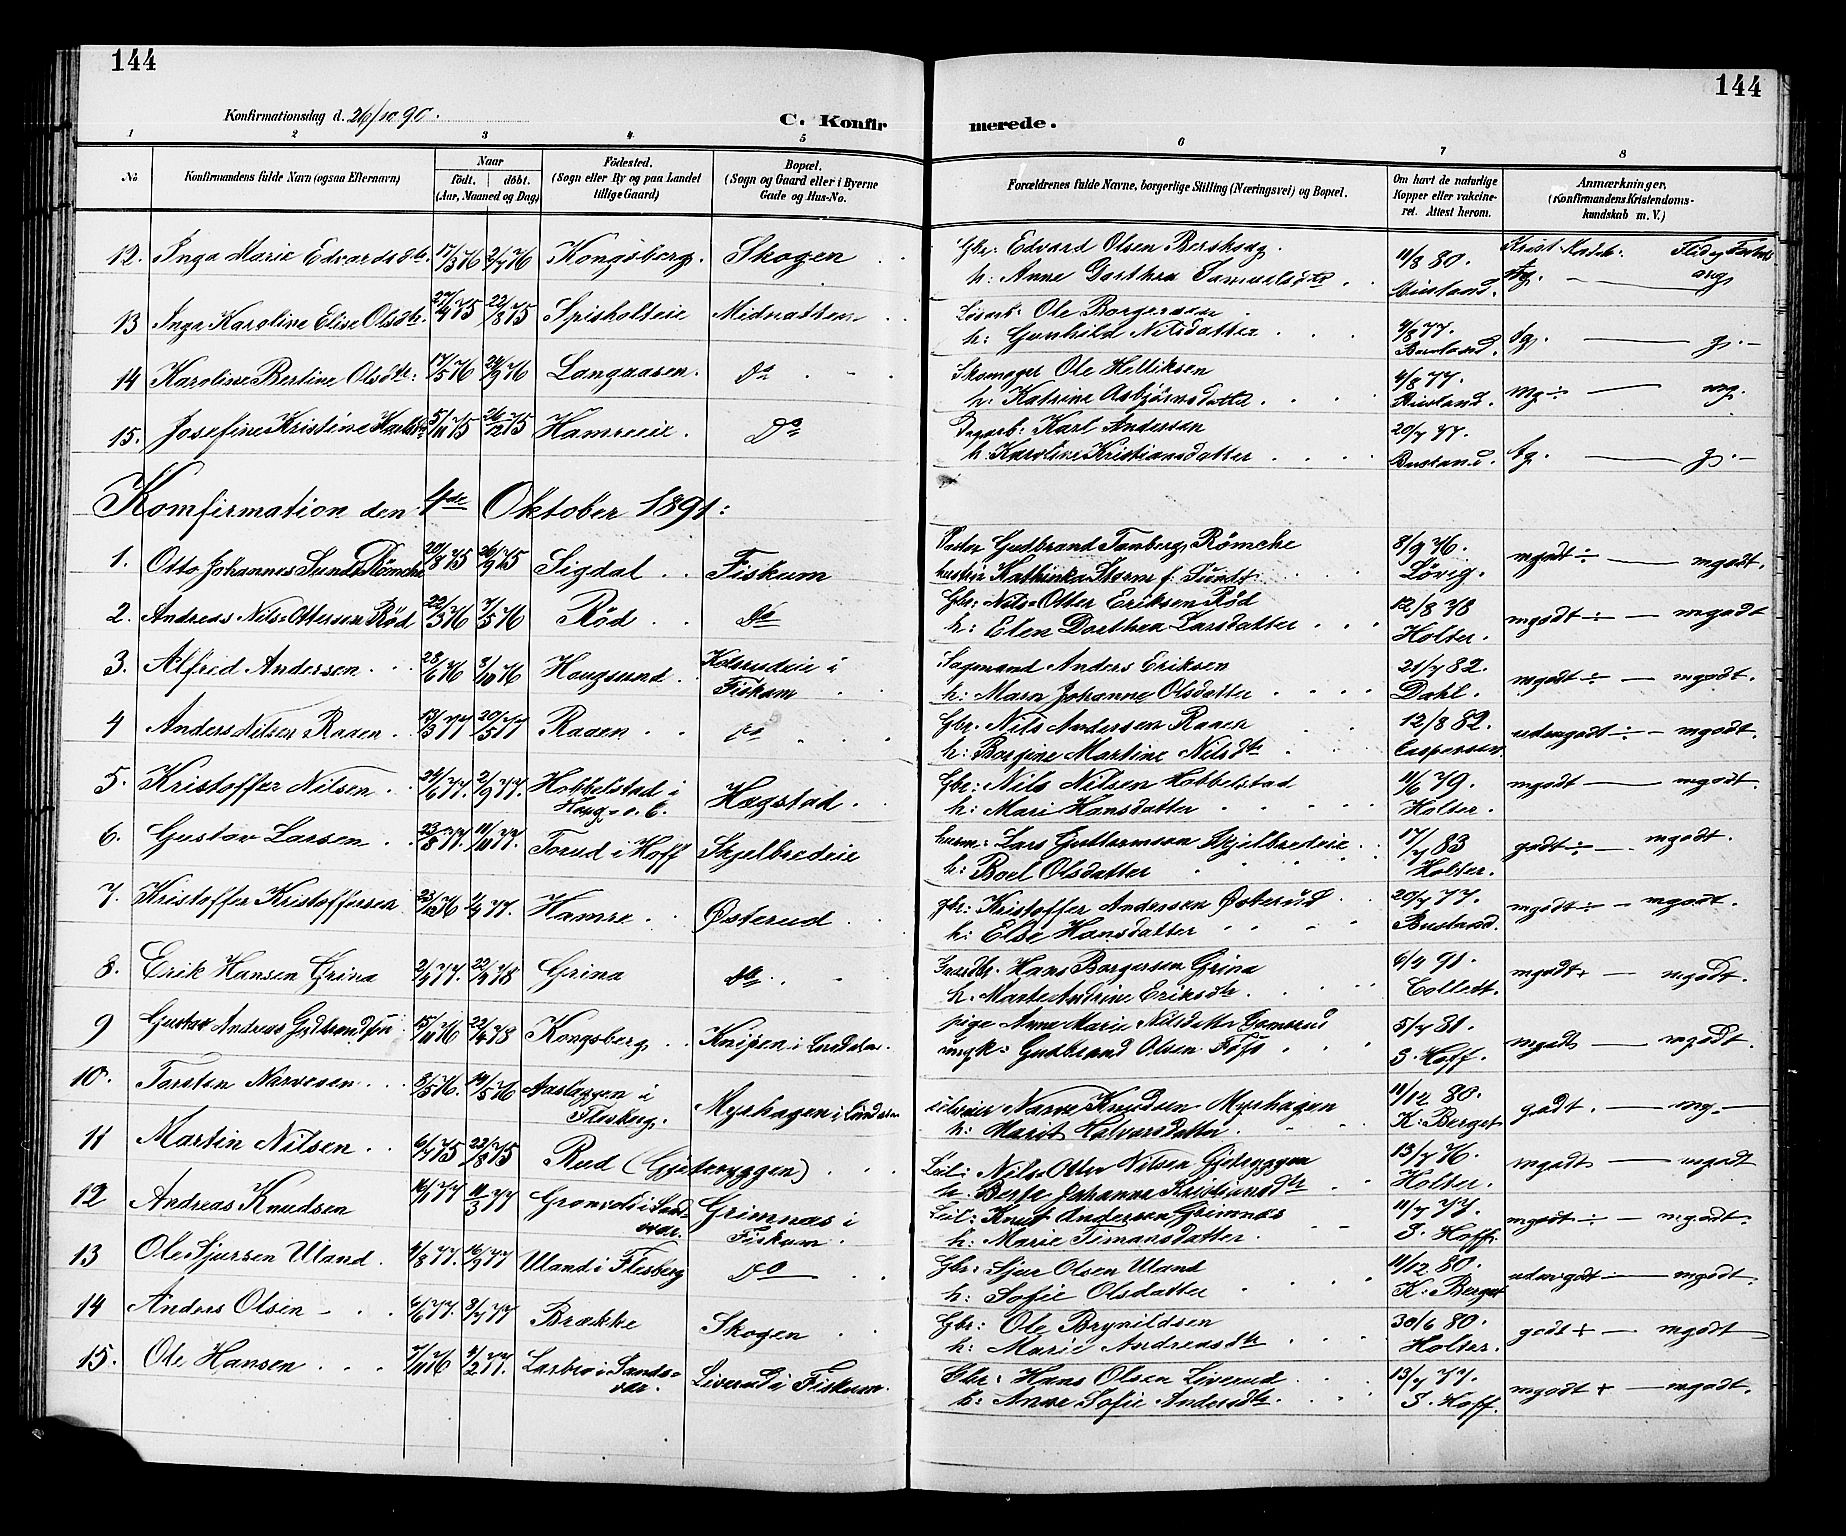 144
144
Konfirmationsdag d. 26/10 90.
C. Konfirmerede.
1 2 3 4 5 6 7 8
No
Konfirmandens fulde Navn (ogsaa Efternavn)
Naar
født. døbt.
(Aar, Maaned og Dag)
Fødested.
(Sogn eller By og paa Landet
tillige Gaard)
Bopæl.
(Sogn og Gaard eller i Byerne
Gade og Hus-No.
Forældrenes fulde Navne, borgerlige Stilling (Næringsvei) og Bopæl.
Om havt de naturlige
Kopper eller vakcine-
ret. Attest herom.
Anmærkninger.
(Konfirmandens Kristendoms-
kundskab m. V.)
12. Inga Marie Edvardsdtr. 17/3 76 2/7 76 Kongsberg. Skogen
Gbr: Edvard Olsen
h: Anne Dorthea Samuelsdtr
11/8 80.
13 Inga Karoline Elise Olsdtr. 27/4 75 22/8 75 Spisholteie Midnatten
Ole Borgersen
h: Gunhild Nilsdatter
3/8 77
Bustand.
tg. — g.
14 Karoline Bertine Olsdtr: 17/5 76 24/9 76 Langaasen. Do
Skomager Ole Helliksen
h: Katrine Asbjørnsdatter
4/8 77.
Bustand.
mg ÷ — mg.
15. Josefine Kristine 5/11 75 26/12 75 Hamreeie. Do
Dagarb: Karl Andersen
h. Karoline Kristiansdatter
20/7 77.
Bustand.
tg. — g.
Komfirmation den 4de Oktober 1891:
1. Otto Johannes Sundt Rømcke 20/8 75 26/9 75 Sigdal Fiskum
Pastor Gudbrand Tanberg Rømcke
hustru Kathinka Storm f. Sundt
8/9 76.
Løvig.
mgodt ÷ — mgodt.
2. Andreas Nils-Ottersen Rød 22/3 76 7/5 76 Rød Do
Gbr: Nils-Otter Eriksen Rød
h: Elen Dorthea Larsdatter
12/8 78
Holter.
mgodt ÷ — mgodt
3. Alfred Andersen 28/6 76 8/10 76 Hougsund. Kolsrudeie i
Fiskum
Sagmand Anders Eriksen
h: Maren Johanne Olsdatter
21/7 82.
Dahl.
mgodt ÷ — mgodt.
4 Anders Nilsen Raaen 13/3 77 20/5 77 Raaen Do
Gbr. Nils Andersen Raaen
h: Borgine Martine Nilsdtr
12/8 82.
Caspersen.
udmgodt ÷ — mgodt.
5. Kristoffer Nilsen 24/6 77. 2/9 77. Hobbelstad i
Houg- Hægstad.
Gbr: Nils Nilsen Hobbelstad
h: Mari Hansdatter
11/6 79.
Holter.
mgodt — mgodt.
6. Gustav Larsen 23/8 77. 11/10 77. Torud i Hoff Skjelbredeie
husm: Lars Guttormsen Skjelbredeie
h: Boel Olsdatter
17/7 83
Holter.
godt ÷ — mgodt.
7. Kristoffer Kristoffersen 23/12 76 2/4 77. Hamre Østerud
gbr: Kristoffer Andersen Østerud
h: Else Hansdatter
20/7 77.
Bustand.
mgodt ÷ — mgodt.
8. Erik Hansen Grina 2/9 77. 22/4 78 Grina Do
Gaardbr. Hans Borgersen Grina
h. Marte Andrine Eriksdtr.
6/4 91.
Collett.
mgodt + — mgodt.
9 Gustav Andreas Gudbrandsen 15/11 76 22/4 78 Kongsberg Knipen i
pige Anne Marie Nilsdatter Gamsrud
ungk: Gudbrand Olsen
5/7 81.
S. Hoff.
mgodt — mgodt.
10. Torsten Narvesen 3/5 76. 14/5 76 i
Flesberg. Myrhagen i
Narve Knudsen Myrhagen
h: Marit Halvorsdatter.
11/12 80.
K. Berget
godt. — mg. —
11 Martin Nilsen 6/7 75 22/8 75 Rud (Gjeteryggen)
Leil: Nils-Otter Nilsen Gjeteryggen
h. Berte Johanne Kristiansdtr
13/7 76.
Holter.
mgodt — mgodt
12 Andreas Knudsen 16/1 77 11/3 77 Gronvold i Sand-
svær. Grimnæs i
Fiskum.
Leil: Knut Andersen Grimnæs
h: Marie Timansdatter.
11/7 77.
S. Hoff.
mgodt ÷ — mgodt.
13 Ole Sjursen Uland. 4/8 77. 16/9 77 Uland i Flesberg Do
Gbr: Sjur Olsen Uland
h: Sofie Olsdatter
11/12 80.
K. Berget
udmgodt — mgodt.
14 Anders Olsen 6/6 77. 8/7 77 Brække Skogen
Gbr: Ole Brynildsen
h: Marie Andreasdtr
30/6 80.
Holter.
godt + — mgodt
15. Ole Hansen 7/11 76 4/2 77. Lasbro i Sands-
vær. Liverud i Fiskum.
Gbr: Hans Olsen Liverud
h: Anne Sofie Andersdtr.
13/7 77.
S. Hoff.
mgodt + — mgodt.